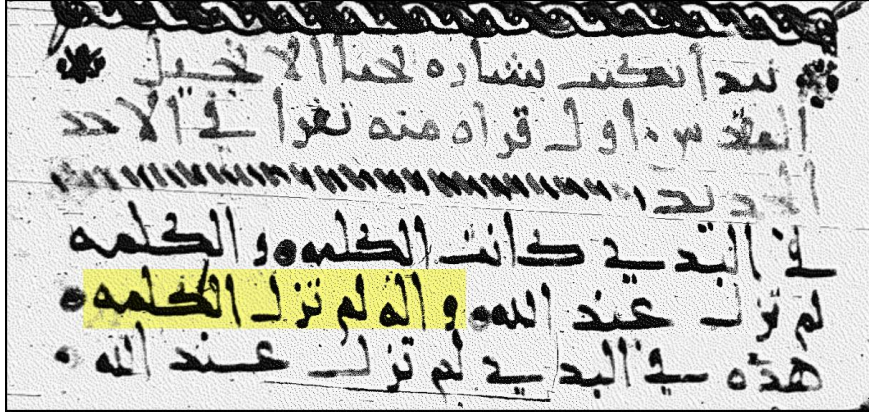 نبدا نكتب بشاره لحنا الانجيل
المقدس ۰ اول قراه منه تقرا في الاحد
الجديد
في البدي كانت الكلمه ۰ و الكلمه
لم تزل عند الله ۰ و اله لم تزل الكلمه ۰
هذه في البدي لم تزل عند الله ۰